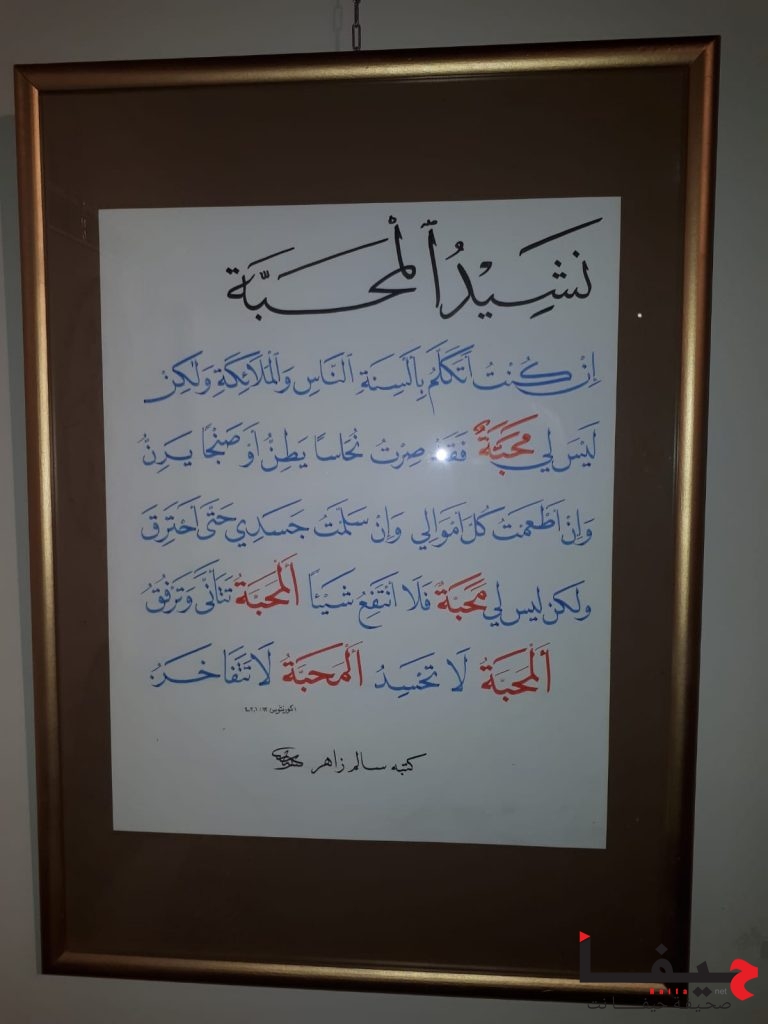 نَشِيْدُ ٱلْمَحَبَّة
إِنْ كُنْتُ أَتَكَلَّمُ بِأَلْسِنَةِ ٱلنَّاسِ وَٱلْمَلَائِكَةِ وَلٰكِنْ
لَيْسَ لِي مَحَبَّةٌ فَقَدْ صِرْتُ نُحَاسًا يَطِنُّ أَوْ صَنْجًا يَرِنُّ
وَإِنْ أَطْعَمْتُ كُلَّ أَمْوَالِي وَإِنْ سَلَّمْتُ جَسَدِي حَتَّى أَحْتَرِقَ
وَلكن ليس لي مَحَبَّةٌ فَلَا أَنْتَفِعُ شَيْئًا أَلْمَحَبَّةُ تَتَأَنَّى وَتَرْفُقُ
أَلْمَحَبَّةُ لَا تَحْسِدُ أَلْمَحَبَّةُ لَا تَتَفَاخَرُ
كتبه سالم زاهر
حيفا
Haifa net
صحيفة حيفا نت